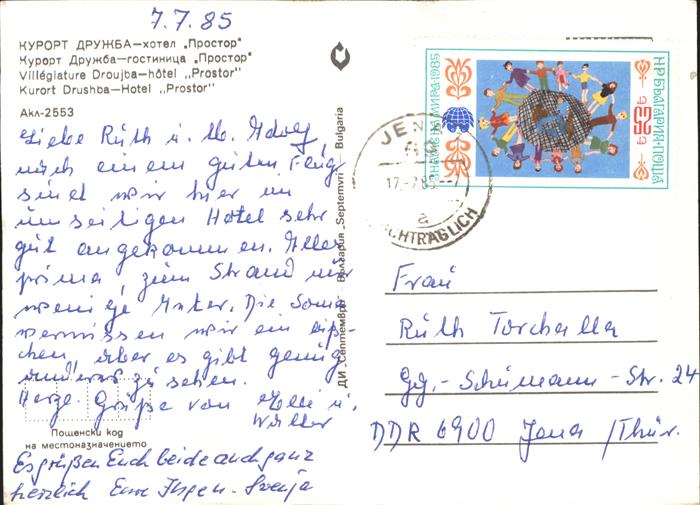 7.7.85
КУРОРТ ДРУЖБА–хотел „Простор"
Курорт Дружба–гостиница „Простор"
Villégiature Droujba–hôtel ,,Prostor"
Kurort Drushba–Hotel ,,Prostor"
Акл-2553
Liebe Ruth u. Adolf
nach einem guten Flug
sind wir hier im
umseitigen Hotel sehr
gut angekommen. Alles
prima, zum Strand nur
wenige Meter. Die Sonne
vermissen wir ein biß-
chen, aber es gibt genug
anderes zu sehen.
Herzl. Grüße von Elli u.
Walter
Пощенски код
на местоназначението
Es grüßen Euch beide auch ganz
herzlich Eure Svenja
ДИ „Септември" България „Septemvri" Bulgaria
НР БЪЛГАРИЯ·ПОЩА
ЗНАМЕ НА МИРА·1985
JENA
17.-7.85.-7
a
NACHTRÄGLICH
Frau
Ruth Torchalla
Gg.-Schumann-Str. 24
DDR 6900 Jena /Thür.